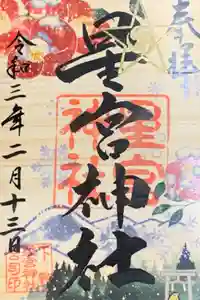 奉拝
星宮神社
星宮
神社
令和三年二月十三日